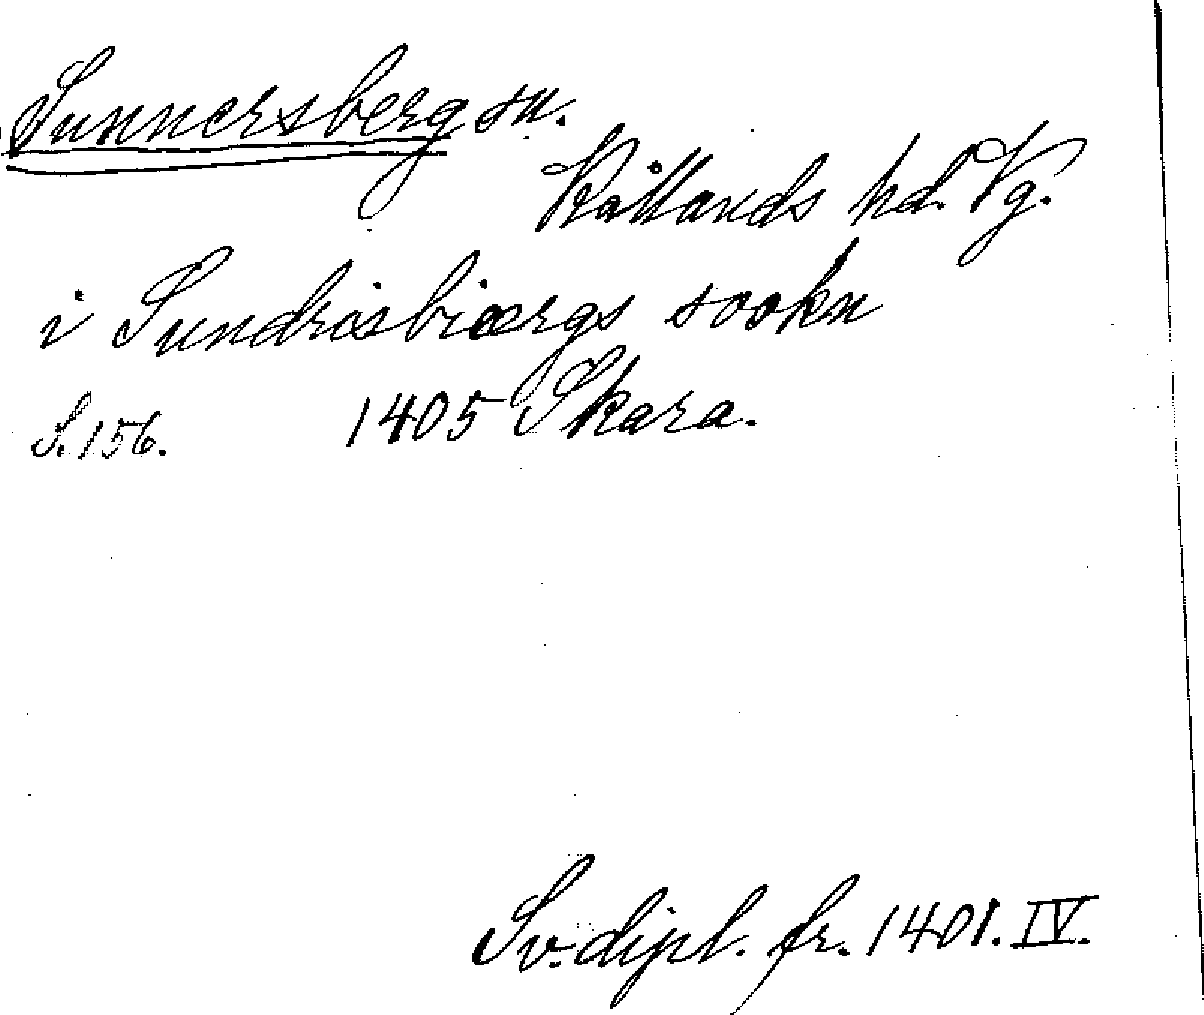 Sunnersberg sn.
Kållands hd. Vg.
i Sundrisbiærgs sookn
S. 156. 1405 Skara.
Sv. dipl. fr. 1401. IV.